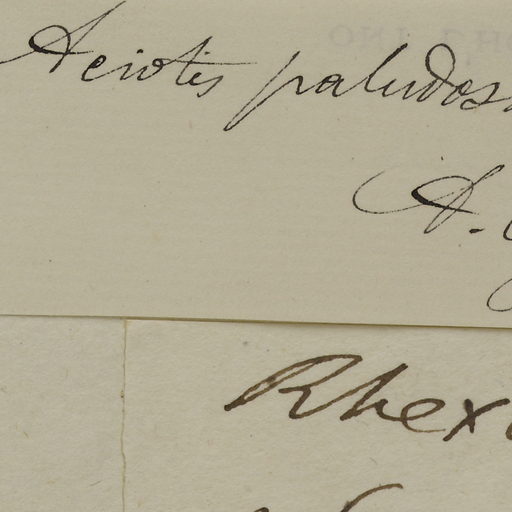 Aciotis paludosa
A.
Rhex